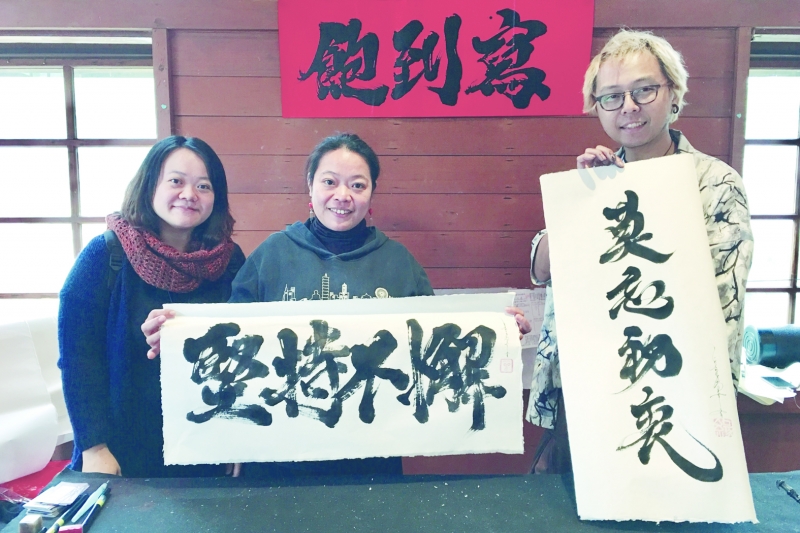 寫到飽
堅持不懈
莫忘初衷